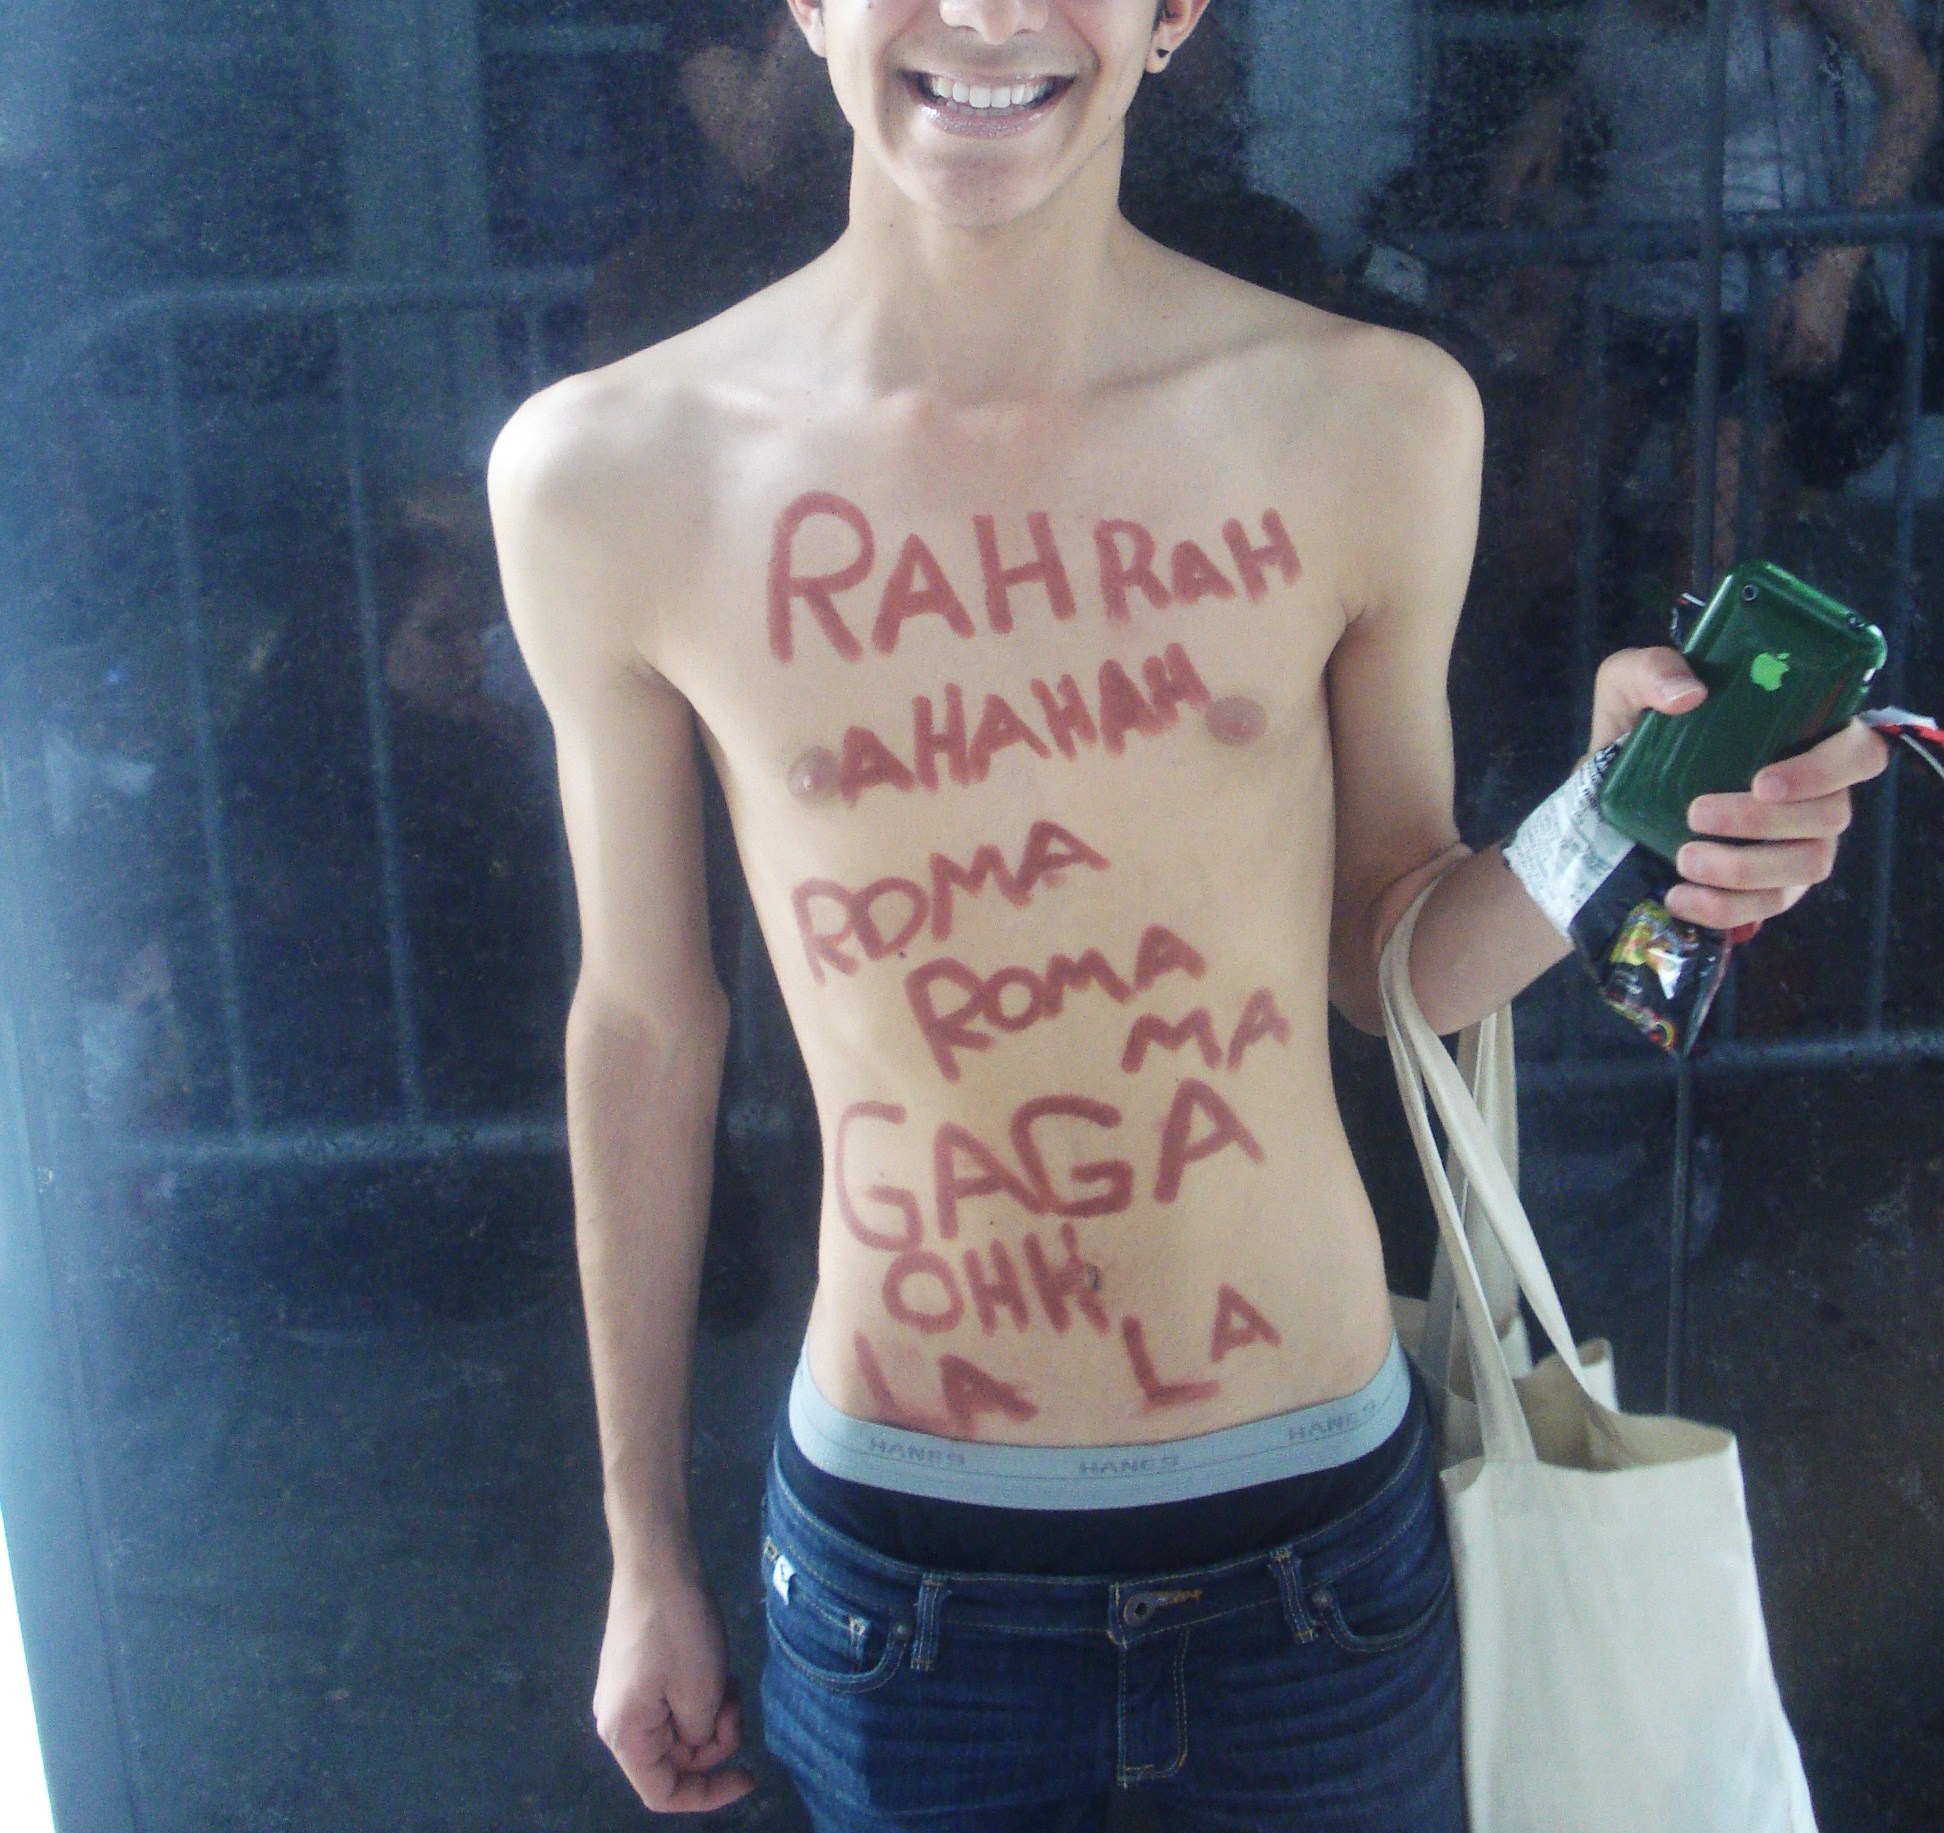 RAH RAH
AHAHAH
ROMA
ROMA
MA
GAGA
OHH
LA LA
HANES HANES HANES